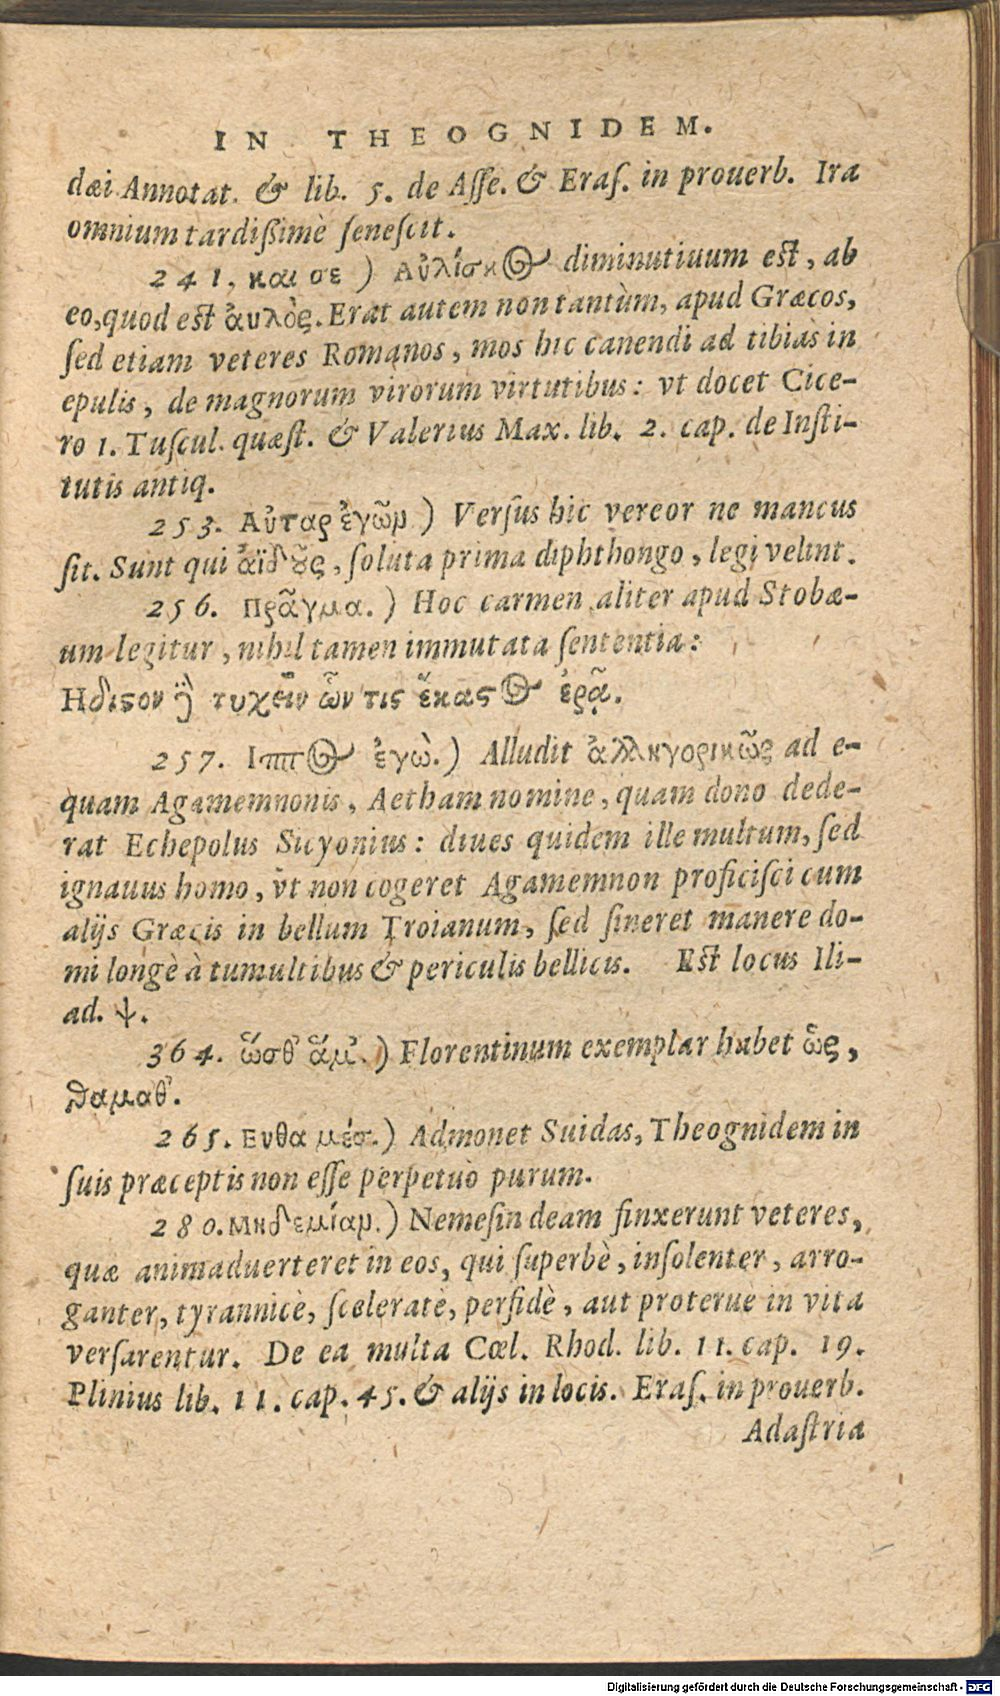 IN THEOGNIDEM.
dæi Annotat. & lib. 5. de Asse. & Eraſ. in prouerb. Ira
omnium tardißimè ſeneſcit.
241, και σε ) Αὐλίσκος diminutiuum est, ab
eo, quod est ἀυλὸς. Erat autem non tantùm, apud Græcos,
ſed etiam veteres Romanos, mos hic canendi ad tibias in
epulis, de magnorum virorum virtutibus: vt docet Cice-
ro 1. Tuſcul. quæſt. & Valerius Max. lib. 2. cap. de Inſti-
tutis antiq.
253. Αὐταρ ἐγῶν ) Verſus hic vereor ne mancus
ſit. Sunt qui ἀϊδοῦς, ſoluta prima diphthongo, legi velint.
256. Πρᾶγμα. ) Hoc carmen aliter apud Stobæ-
um legitur, nihil tamen immutata ſententia:
Ηδιστον δὲ τυχεῖν ὧν τις ἕκαστος ἐρᾷ.
257. Ιππος ἐγὼ.) Alludit ἀλληγορικῶς ad e-
quam Agamemnonis, Aetham nomine, quam dono dede-
rat Echepolus Sicyonius: diues quidem ille multum, ſed
ignauus homo, vt non cogeret Agamemnon proficiſci cum
alijs Græcis in bellum Troianum, ſed ſineret manere do-
mi longè à tumultibus & periculis bellicis. Est locus Ili-
ad. ψ.
364. ὥσθ' ἅμ'. ) Florentinum exemplar habet ὣς,
θαμαθ'.
265. Ενθα μέσ.) Admonet Suidas, Theognidem in
ſuis præceptis non eſſe perpetuò purum.
280. Μηδεμίαν.) Nemeſin deam finxerunt veteres,
quæ animaduerteret in eos, qui ſuperbè, inſolenter, arro-
ganter, tyrannicè, ſceleratè, perfidè, aut proteruè in vita
verſarentur. De ea multa Cœl. Rhod. lib. 11. cap. 19.
Plinius lib. 11. cap. 45. & alijs in locis. Eraſ. in prouerb.
Adaſtria
Digitalisierung gefördert durch die Deutsche Forschungsgemeinschaft - DFG